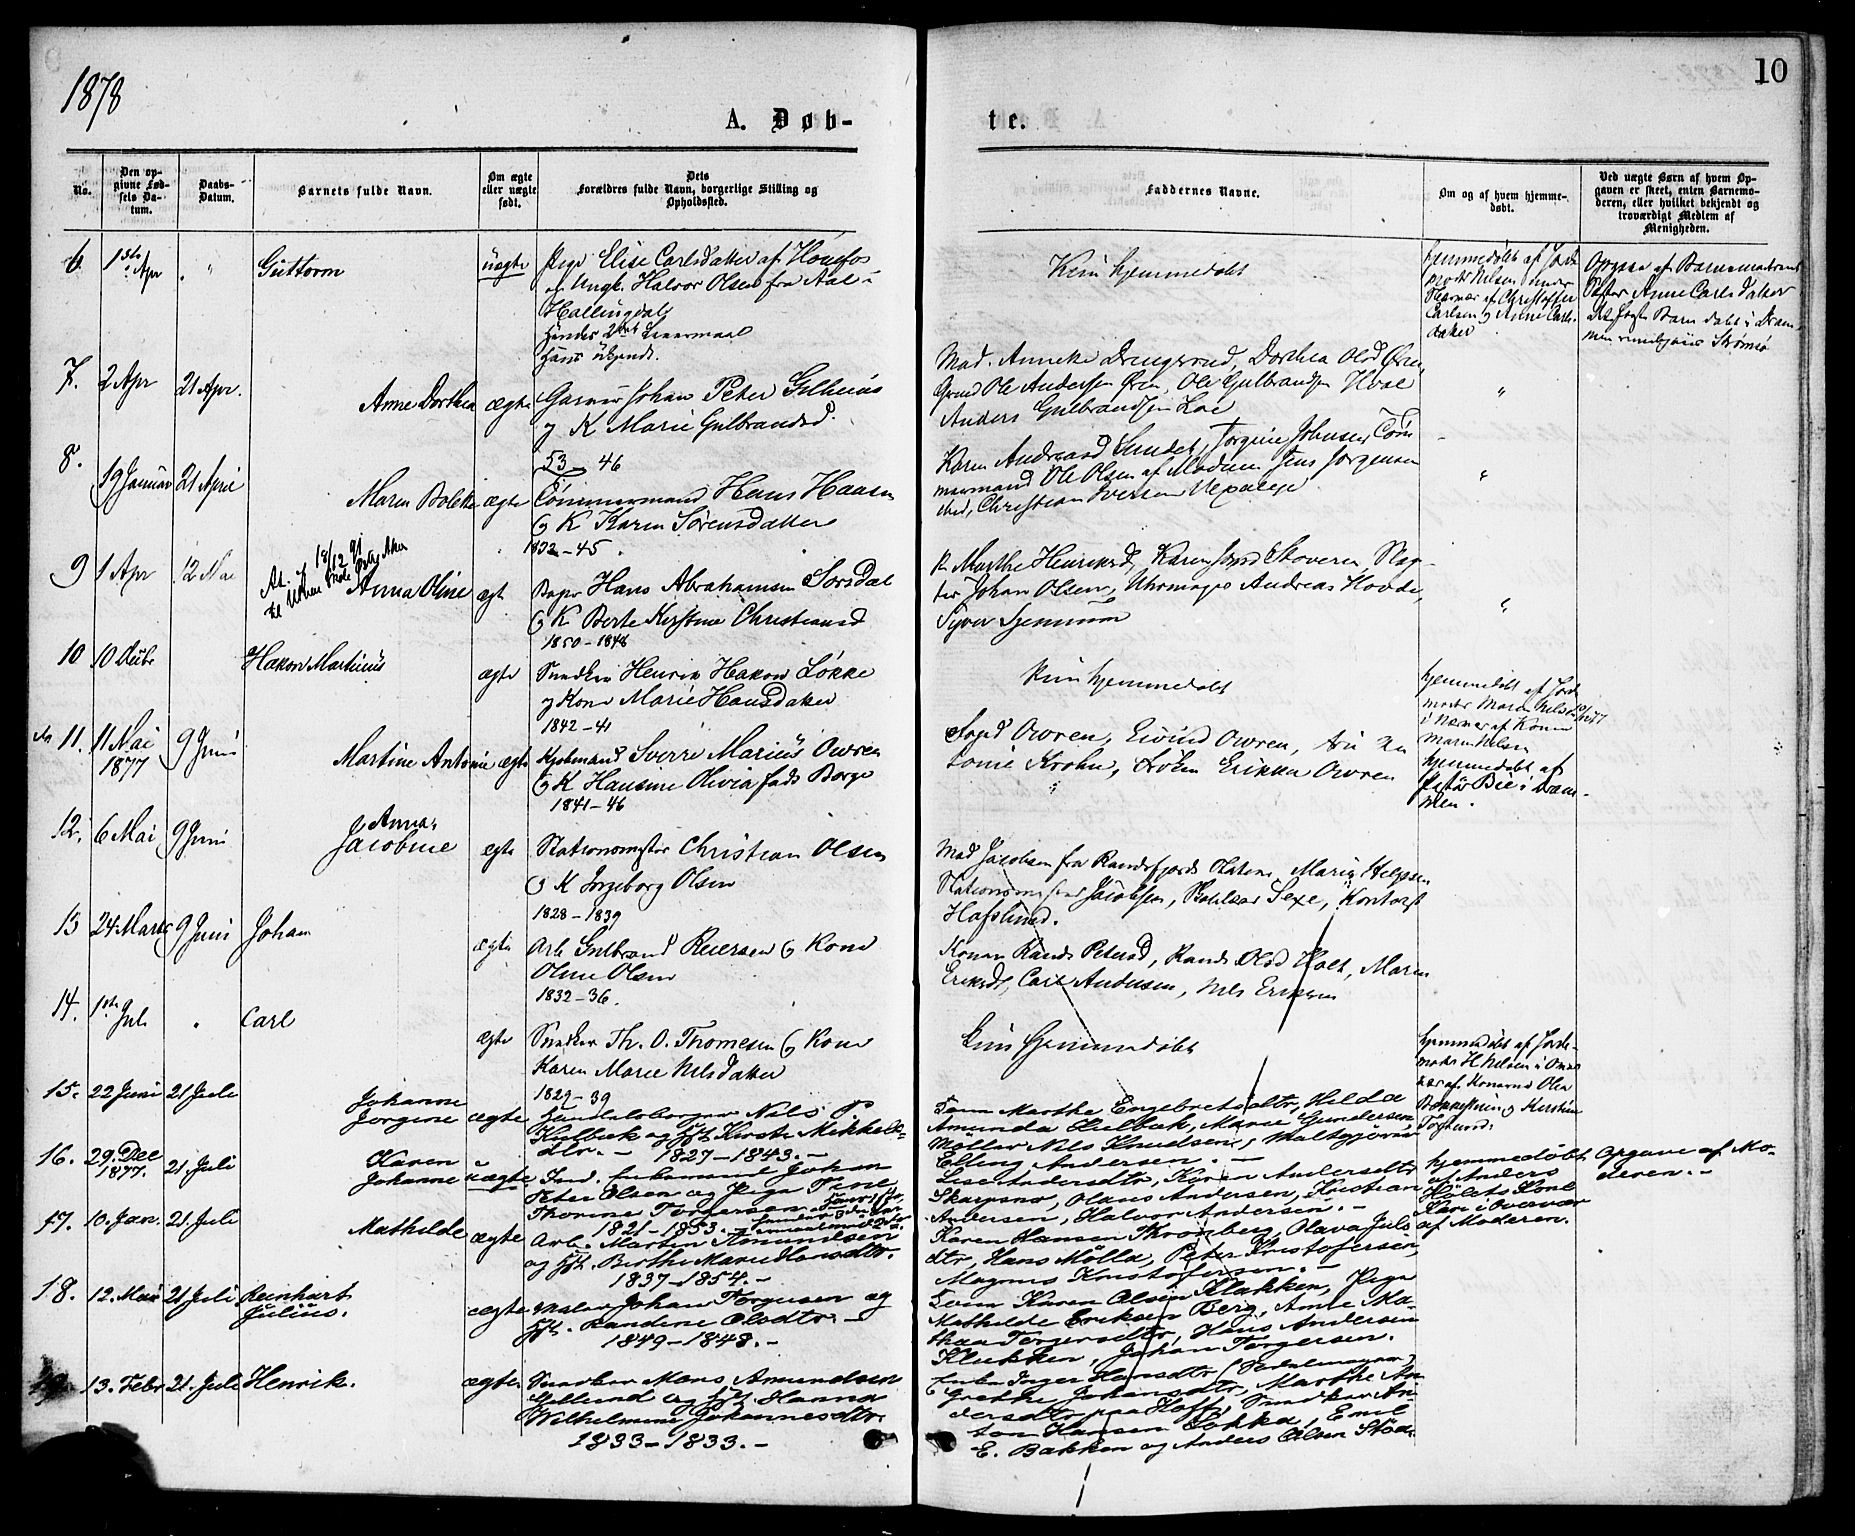 1878
10
A. Døb-
te.
No.
Den op-
givne Fød-
sels Da-
tum.
Daabs-
Datum.
Barnets fulde Navn.
Om ægte
eller uægte
født.
Dets
Forældres fulde Navn, borgerlige Stilling og
Opholdssted.
Faddernes Navne.
Om og af hvem hjemme-
døbt.
Ved uægte Børn af hvem Op-
gaven er skeet, enten Barnemo-
deren, eller hvilket bekjendt og
troværdigt Medlem af
Menigheden.
6 1ste Apr " " Guttorm uægte Pige Elise Carlsdatter af Hønefos
og Ungk. Halvor Olsen fra Aal i
Hallingdal
Hendes 2det Leiermaal
Hans ubekjendt.
Kun hjemmedøbt
hjemmedøbt af Jorde
moder Nielsen under
Nærvær af Christoffer
Carlsen og Anne Carls-
datter
Opgave af Barnemoderens
Søster Anne Carlsdatter
7. 2 Apr 21 Apr. Anne Dorthea ægte Garver Johan Peter Gilhuus
og K Marie Gulbrandsd.
53 - 46
Mad. Anneke Drengsrud, Dorthea Olsd Øren,
Ole Andersen Øren, Ole Gulbrandsen Hval
Anders Gulbrandsen Loe
"
8. 19 Januar 21 April Maren Bolette ægte Tømmermand Hans Hansen
og K Karen Sørensdatter
1832 - 45.
Karen Andreasd Sundet, Jørgine Johnsen, Tøm
mermand Ole Olsen af Modum, Jens Jørgensen
Christian Iversen
"
9 1 Apr 12 Mai Anna Oline ægt Bager Hans Abrahamsen Sørsdal
og K Berte Kirstine Christiansd
1850 - 1848
At. 18/12 91
K Marthe Henriksd, Karen Skoveren, Slag-
ter Johan Olsen, Uhrmager Andreas Hovde,
Syver
"
10 10 Decbr Hakon Martinius ægte Snedker Henrik Hakon Løkke
og Kone Marie Hansdatter
1842 - 41
Kun hjemmedøbt
hjemmedøbt af Jorde
moder Maren Nilsen
i Nærvær af Konen
Maren Nilsen
11. 11 Mai
1877
9 Juni Martine Antonie ægte Kjøbmand Sverre Marius Owren
og K Hansine Olivia født Borge
1841 - 46
Owren, Eivind Owren, An
tonie Krohn, Erikka Owren
hjemmedøbt af
Pastor Bie i Dram-
men.
12. 6 Mai 9 Juni Anna
Jacobine ægte Stationsmester Christian Olsen
og K Ingeborg Olsen
1828 - 1839
Mad Jacobsen fra Randsfjords Station, Marie Helgesen
Stationsmester Jacobsen, Sexe, Kontorist
Hafslund.
13 24 Marts 9 Juni Johan ægte Arb. Gulbrand Reiersen og Kone
Oline Olsen
1832 - 36.
Konen Randi Petersd, Randi Olsd Holt, Maren
Eriksdt, Carl Andersen, Nils Eriksen
14. 1ste Juli " Carl ægte Snedker Th. O. Thomesen og Kone
Karen Marie Nilsdatter
1829 - 39
Kun hjemmedøbt
hjemmedøbt af Jorde-
moder H Nilsen i Nær
vær af Konerne Olea
og Kirstine
15. 22 Juni 21 Juli Johanne
Jorgine ægte Handelsborger Nils P.
Hulbæk og Hst. Kirsti Mikkels-
dtr. — 1827 — 1843. —
Marthe Engebretsdtr, Hilda
Amunda Hulbæk, Marie Gundersen,
Møller Nils Knudsen, Maltgjører
Elling Andersen. —
16. 29. Dec
1877.
21. Juli Karen
Johanne uægte Ind. Enkemand Johan
Peter Olsen og Pige Tine
Thorine Torgersen.
1821 - 1853. —
Lise Andersdtr, Karen Andersdtr
Skarpsno, Olaus Andersen, Kristian
Andersen, Halvor Andersen. —
hjemmedøbt
af Anders
Hølets Kone
Kari i Overvær
af Moderen.
Opgave af Mo-
deren. —
17. 10. Jan. 21. Juli Mathilde ægte Arb. Martin Amundsen
og Hst. Berthe Marie Hansdtr.
1837 - 1854. —
Karen Hansen Kronberg, Olava Juls
dtr, Hans Mølla, Peter Kristofersen,
Magnus Kristofersen. —
18. 12. Mai 21 Juli Reinhart
Julius. ægte Maler Johan Torgersen og
Hst. Randine Olsdtr. —
1849 - 1848. —
Karen Olsen Klækken, Pige
Mathilde Eriksen Berg, Anne Ma-
thea Torgersdtr, Hans Andersen
Klækken, Johan Torgersen.
13. Febr. 21. Juli Henrik. ægte Snedker Mons Amundsen
og Hst. Hanna
Wilhelmine Johannesdtr.
1833 — 1833. —
Enke Inger Hansdtr
Grethe Johansdtr, Marthe An-
dersdtr paa Hoff, Snedker An-
ton Hansen Løkka, Emil
E. Bakken og Anders Olsen